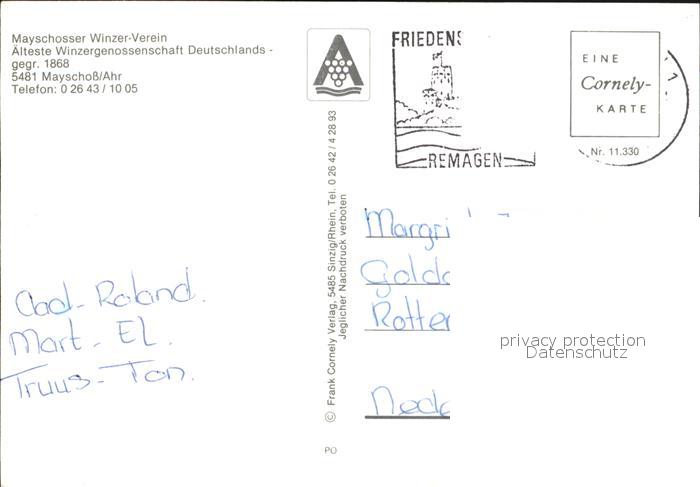 Mayschosser Winzer-Verein
Älteste Winzergenossenschaft Deutschlands -
gegr. 1868
5481 Mayschoß/Ahr
Telefon: 0 26 43 / 10 05
FRIEDENS
REMAGEN
EINE
Cornely-
KARTE
Nr. 11.330
© Frank Cornely Verlag, 5485 Sinzig/Rhein, Tel. 0 26 42 / 4 28 93
Jeglicher Nachdruck verboten
Margri
Golds
Rotter
Nede
privacy protection
Datenschutz
Aad-Roland.
Mart - EL.
Truus-Ton.
PO